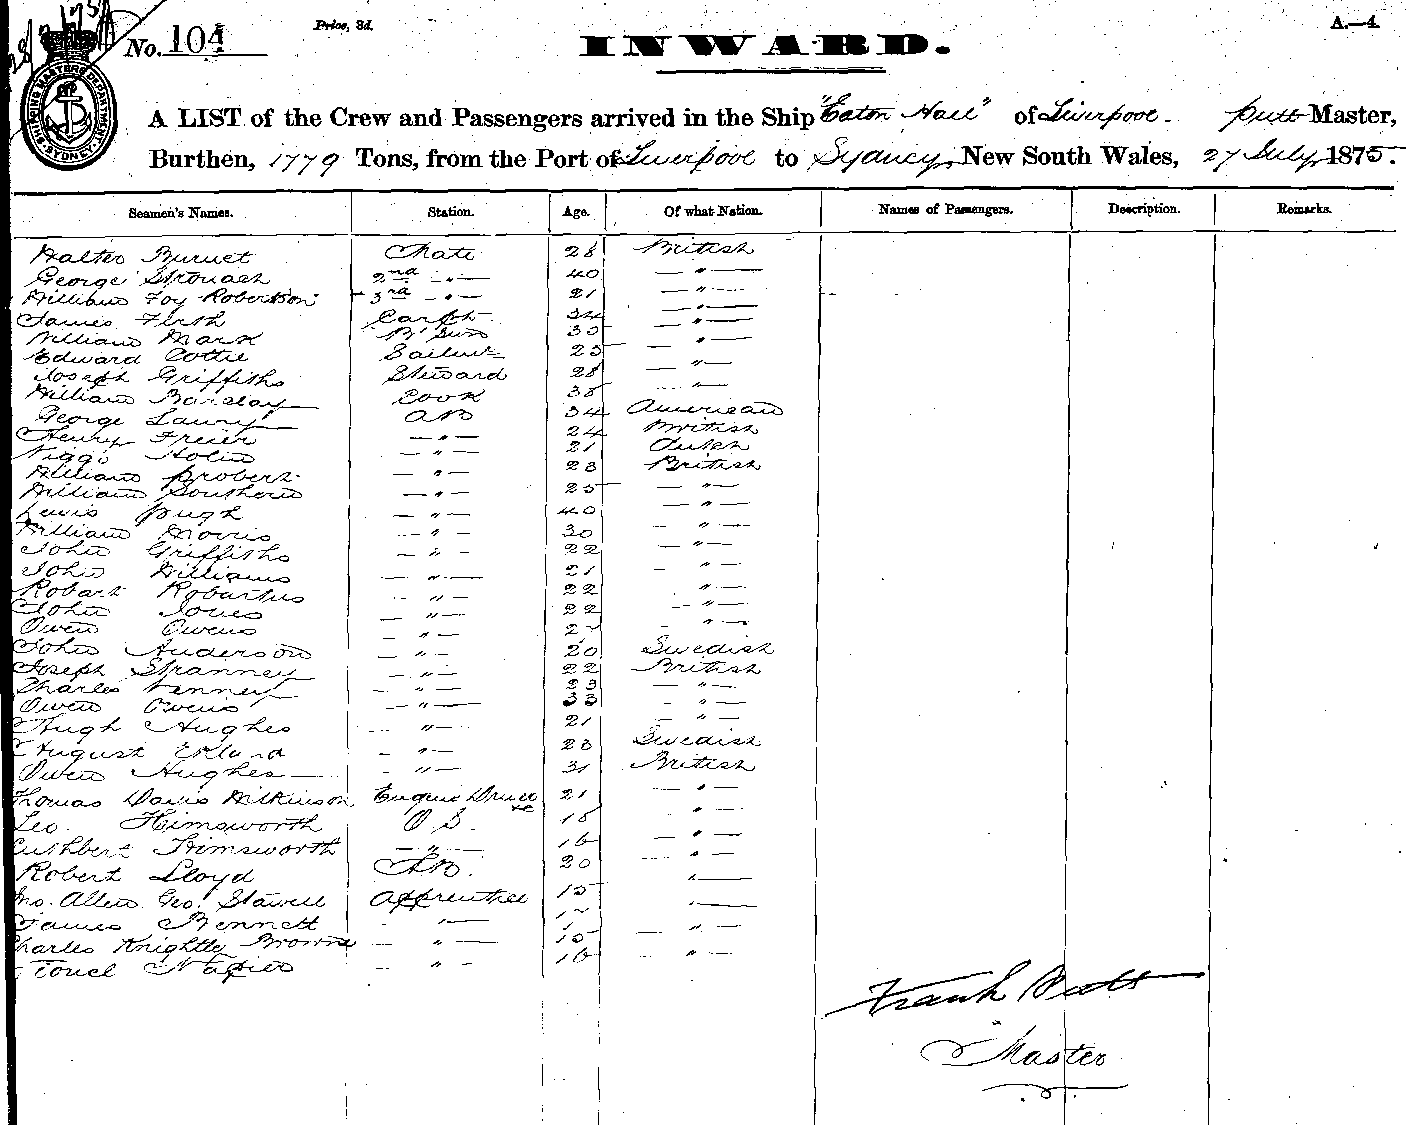 No. 104 Price, 3d. A.—4.
INWARD.
SHIPPING MASTERS DEPARTMENT SYDNEY
A LIST of the Crew and Passengers arrived in the Ship "Eaton Hall" of Liverpool. Putt Master,
Burthen, 1779 Tons, from the Port of Liverpool to Sydney, New South Wales, 27 July 1875.
Seamen's Names. Station. Age. Of what Nation. Names of Passengers. Description. Remarks.
Walter Burnet Mate 28 British
George Stronach 2nd —"— 40 —"—
William Foy Robertson 3rd —"— 21 —"—
James Firth Carptr 34 —"—
William Mark B'Sun 35 —"—
Edward Cottie Sailmr 25 —"—
Joseph Griffiths Steward 28 —"—
William Barclay Cook 38 —"—
George Laury AB 34 American
Henry Freier —"— 24 British
Viggo Holm —"— 21 Dutch
William Probert —"— 23 British
William Southern —"— 25 —"—
Lewis Pugh —"— 40 —"—
William Morris —"— 30 —"—
John Griffiths —"— 22 —"—
John Williams —"— 21 —"—
Robart Robartus —"— 22 —"—
John Jones —"— 22 —"—
Owen Owens —"— —"—
John Anderson —"— 20 Swedish
Joseph Stranney —"— 22 British
Charles —"— 23 —"—
Owen Owens —"— 33 —"—
Hugh Hughes —"— 21 —"—
August Eklund —"— 23 Swedish
Owen Hughes —"— 31 British
Thomas Davis Wilkinson Engine Driver 21 —"—
Geo. Himsworth O S. 18 —"—
Cuthbert Himsworth —"— 16 —"—
Robert Lloyd AB. 20 —"—
Jno. Allen Geo. Stawell Apprentice 15 —"—
James Bennett —"— —"—
Charles Knightly Browne —"— 15 —"—
Lionel Napier —"— 16 —"—
Frank Putt
Master